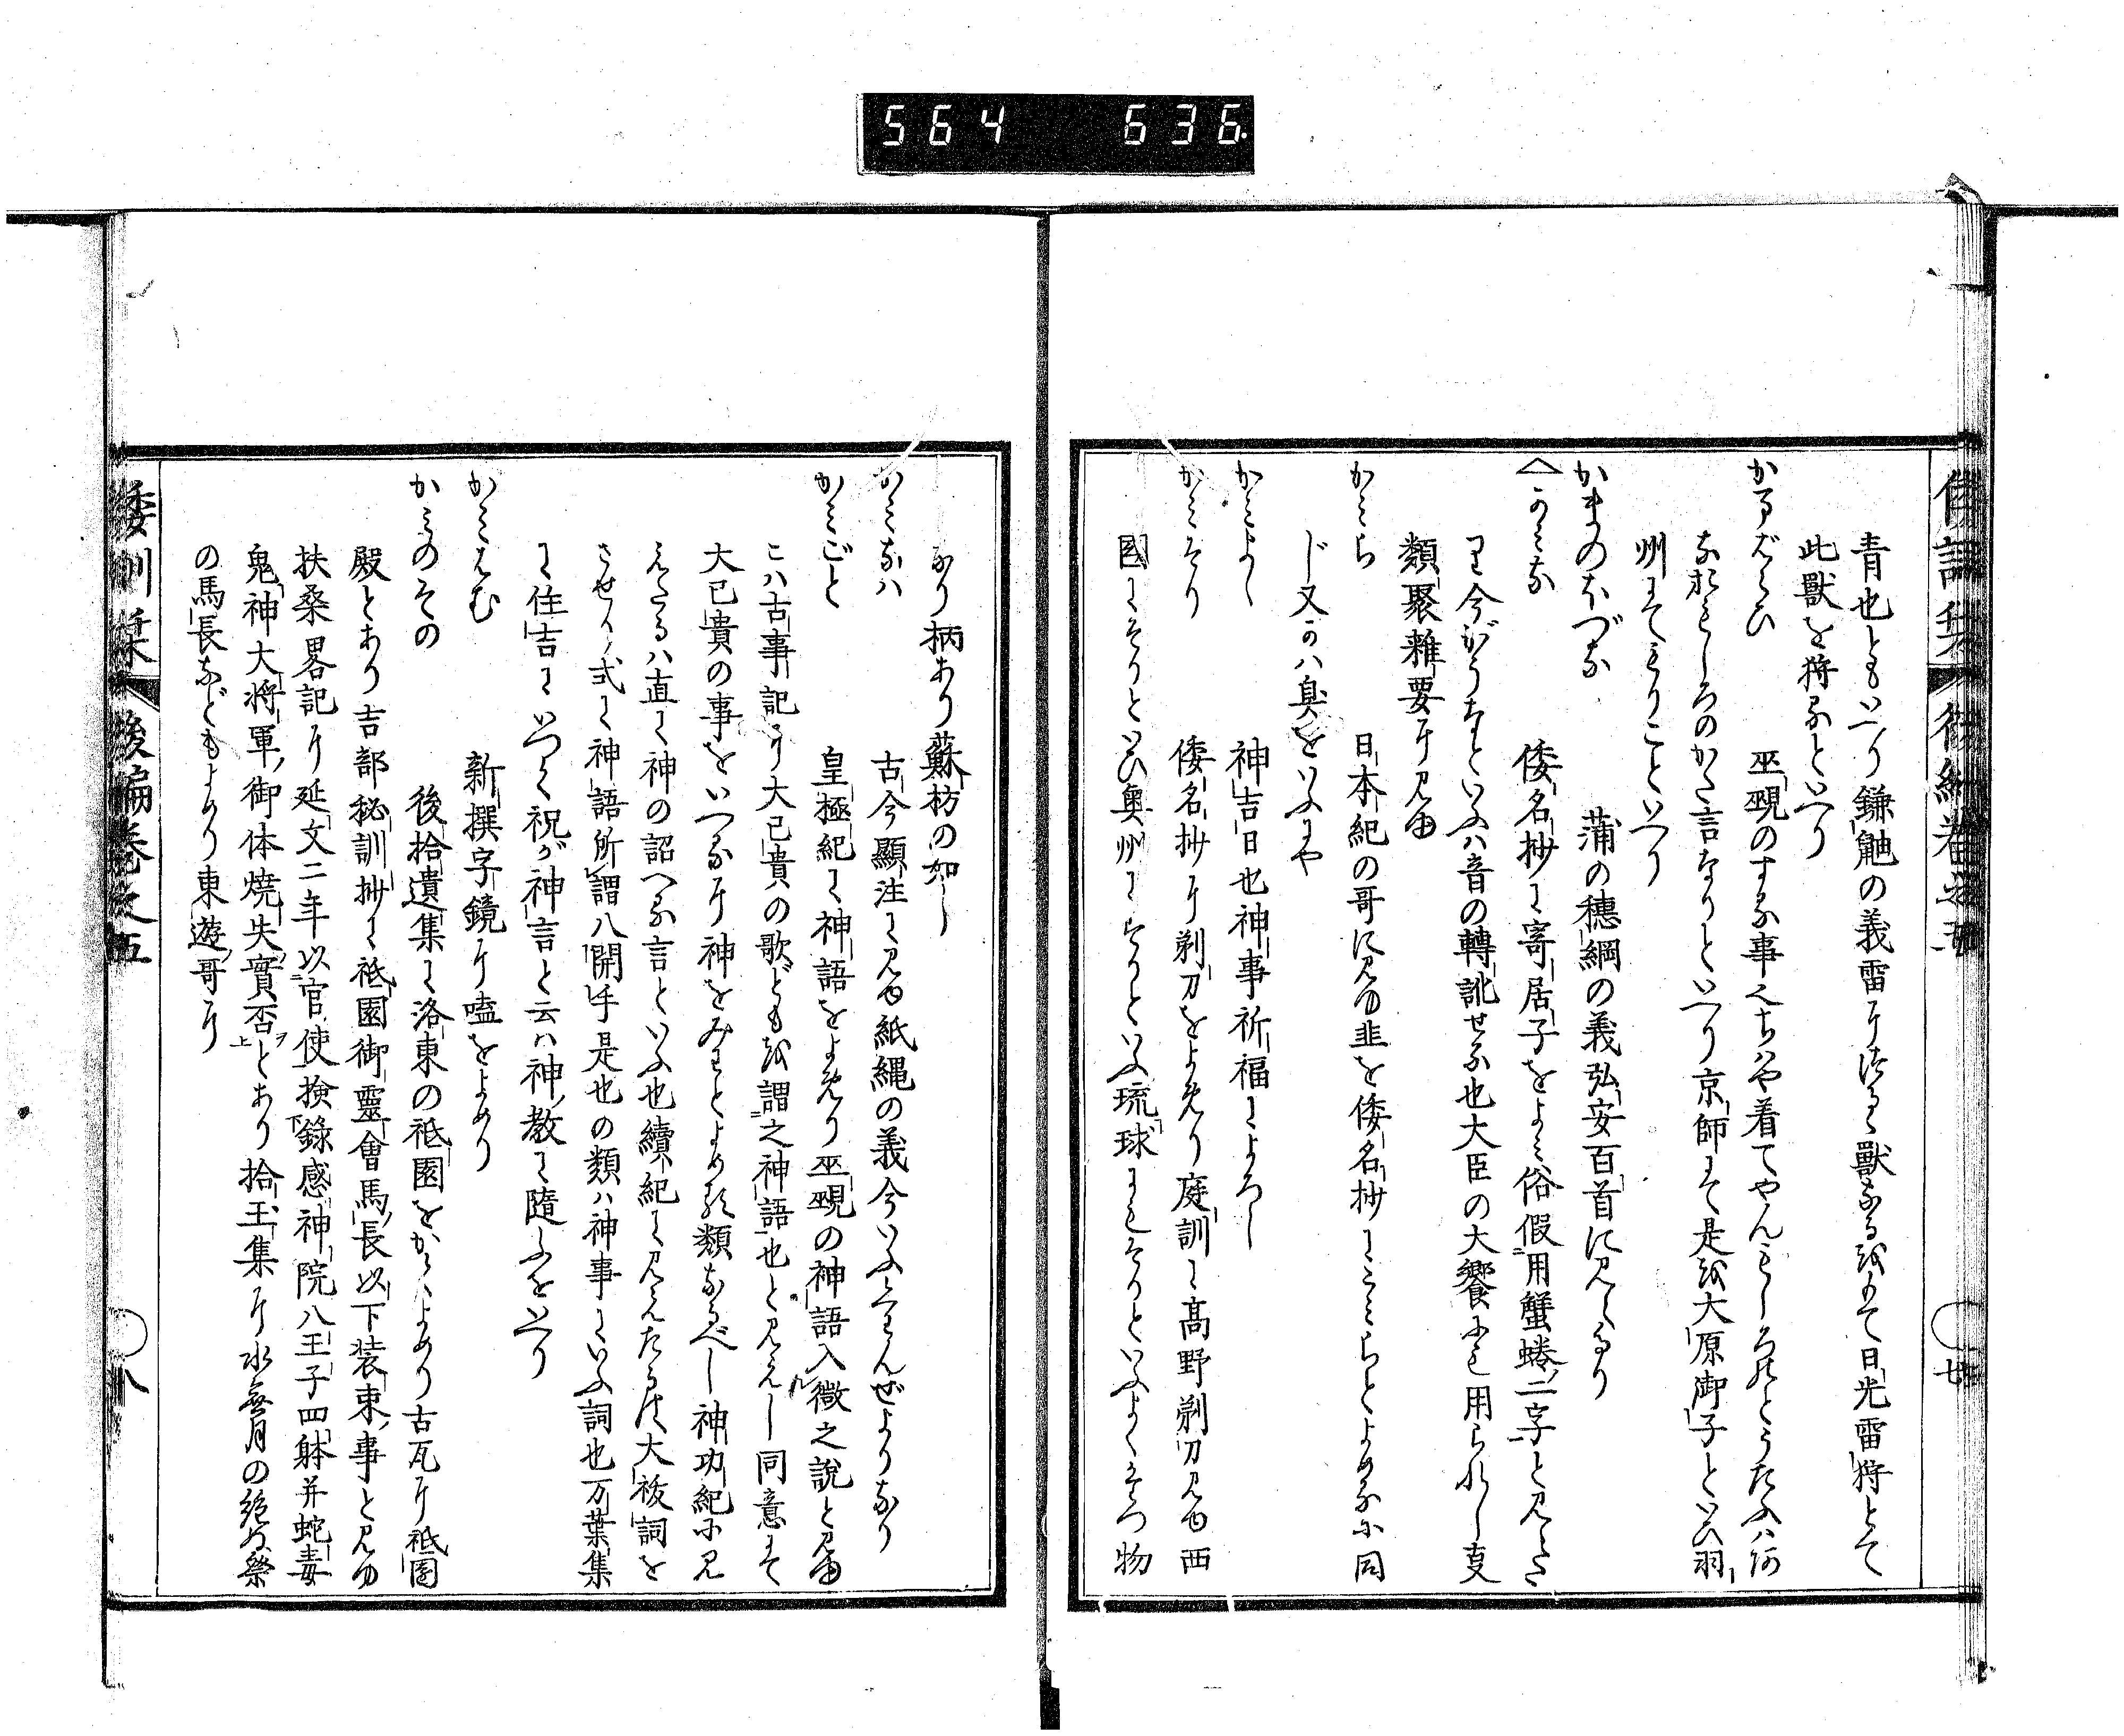 564 636
青也ともいへり鎌鼬の義雷に似たる獣なるをもて日光雷狩とて
此獣を狩るといへり
かまばらひ 巫覡のする事也ちはや着てやんもしろ
なおもしろのかた言なりといへり京師にて是を大原御子といひ羽
州にてもりこといへり
かまのほづな 蒲の穂綱の義弘安百首に見えたり
へかみな 倭名抄に寄居子をよみ俗假用蟹蜷二字と見えた
り今がうなといふは音の轉訛せる也大臣の大饗にも用られし事
類聚雑要に見ゆ
かみら 日本紀の哥に見ゆ韭を倭名抄にこみらとよめるに同
じ又かは臭をいふにや
かみよし 神吉日也神事祈福によろし
かみそり 倭名抄に剃刀をよめり庭訓に髙野剃刀見ゆ西
國にそりといひ奥州にすりといふ琉球にもそりといふよくそる物
なり柄あり蘇枋の如し
かみなは 古今顯注に見ゆ紙縄の義今いふくわんぜよりなり
かみごと 皇極紀に神語をよめり巫覡の神語入微之說と見ゆ
こは古事記に大已貴の歌どもを謂之神語也と見えし同意にて
大已貴の事をいへるに神をみわとよめる類なるべし神功紀に見
えたるは直に神の詔へる言といふ也續紀に見えたるは大祓詞を
させり式に神語所謂八開手是也の類は神事にいふ詞也万葉集
に住吉にいつく祝が神言と云は神ノ教に隨ふをいへり
かみはむ 新撰字鏡に嗑をよめり
かみのその 後拾遺集に洛東の祗園をかくよめり古瓦に祗園
殿とあり吉部秘訓抄に祗園御靈會馬長以下装束ノ事と見ゆ
扶桑畧記に延文二年以官使検錄感神院八王子四躰并蛇毒
鬼神大将軍ノ御体焼失ノ實否ヲとあり拾玉集に水無月の絶ぬ祭
の馬長などもよめり東遊ノ哥に
倭訓栞 後編巻之五 八